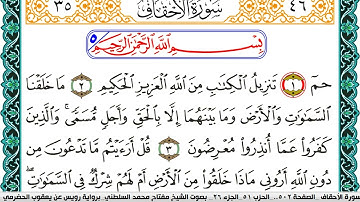 ٣٥ سُورَةُ الْأَحْقَافِ ٤٦
٥ بِسْمِ اللَّهِ الرَّحْمَٰنِ الرَّحِيمِ
حمٓ ١ تَنزِيلُ الْكِتَابِ مِنَ اللَّهِ الْعَزِيزِ الْحَكِيمِ ٢ مَا خَلَقْنَا
السَّمَاوَاتِ وَالْأَرْضَ وَمَا بَيْنَهُمَا إِلَّا بِالْحَقِّ وَأَجَلٍ مُّسَمًّى وَالَّذِينَ
كَفَرُوا عَمَّا أُنذِرُوا مُعْرِضُونَ ٣ قُلْ أَرَأَيْتُم مَّا تَدْعُونَ مِن
دُونِ اللَّهِ أَرُونِي مَاذَا خَلَقُوا مِنَ الْأَرْضِ أَمْ لَهُمْ شِرْكٌ فِي السَّمَاوَاتِ
سورة الأحقاف .. الصفحة ٥٠٢ .. الحزب ٥١ .. الجزء ٢٦ .. بصوت الشيخ مفتاح محمد السلطني .. برواية رويس عن يعقوب الحضرمي